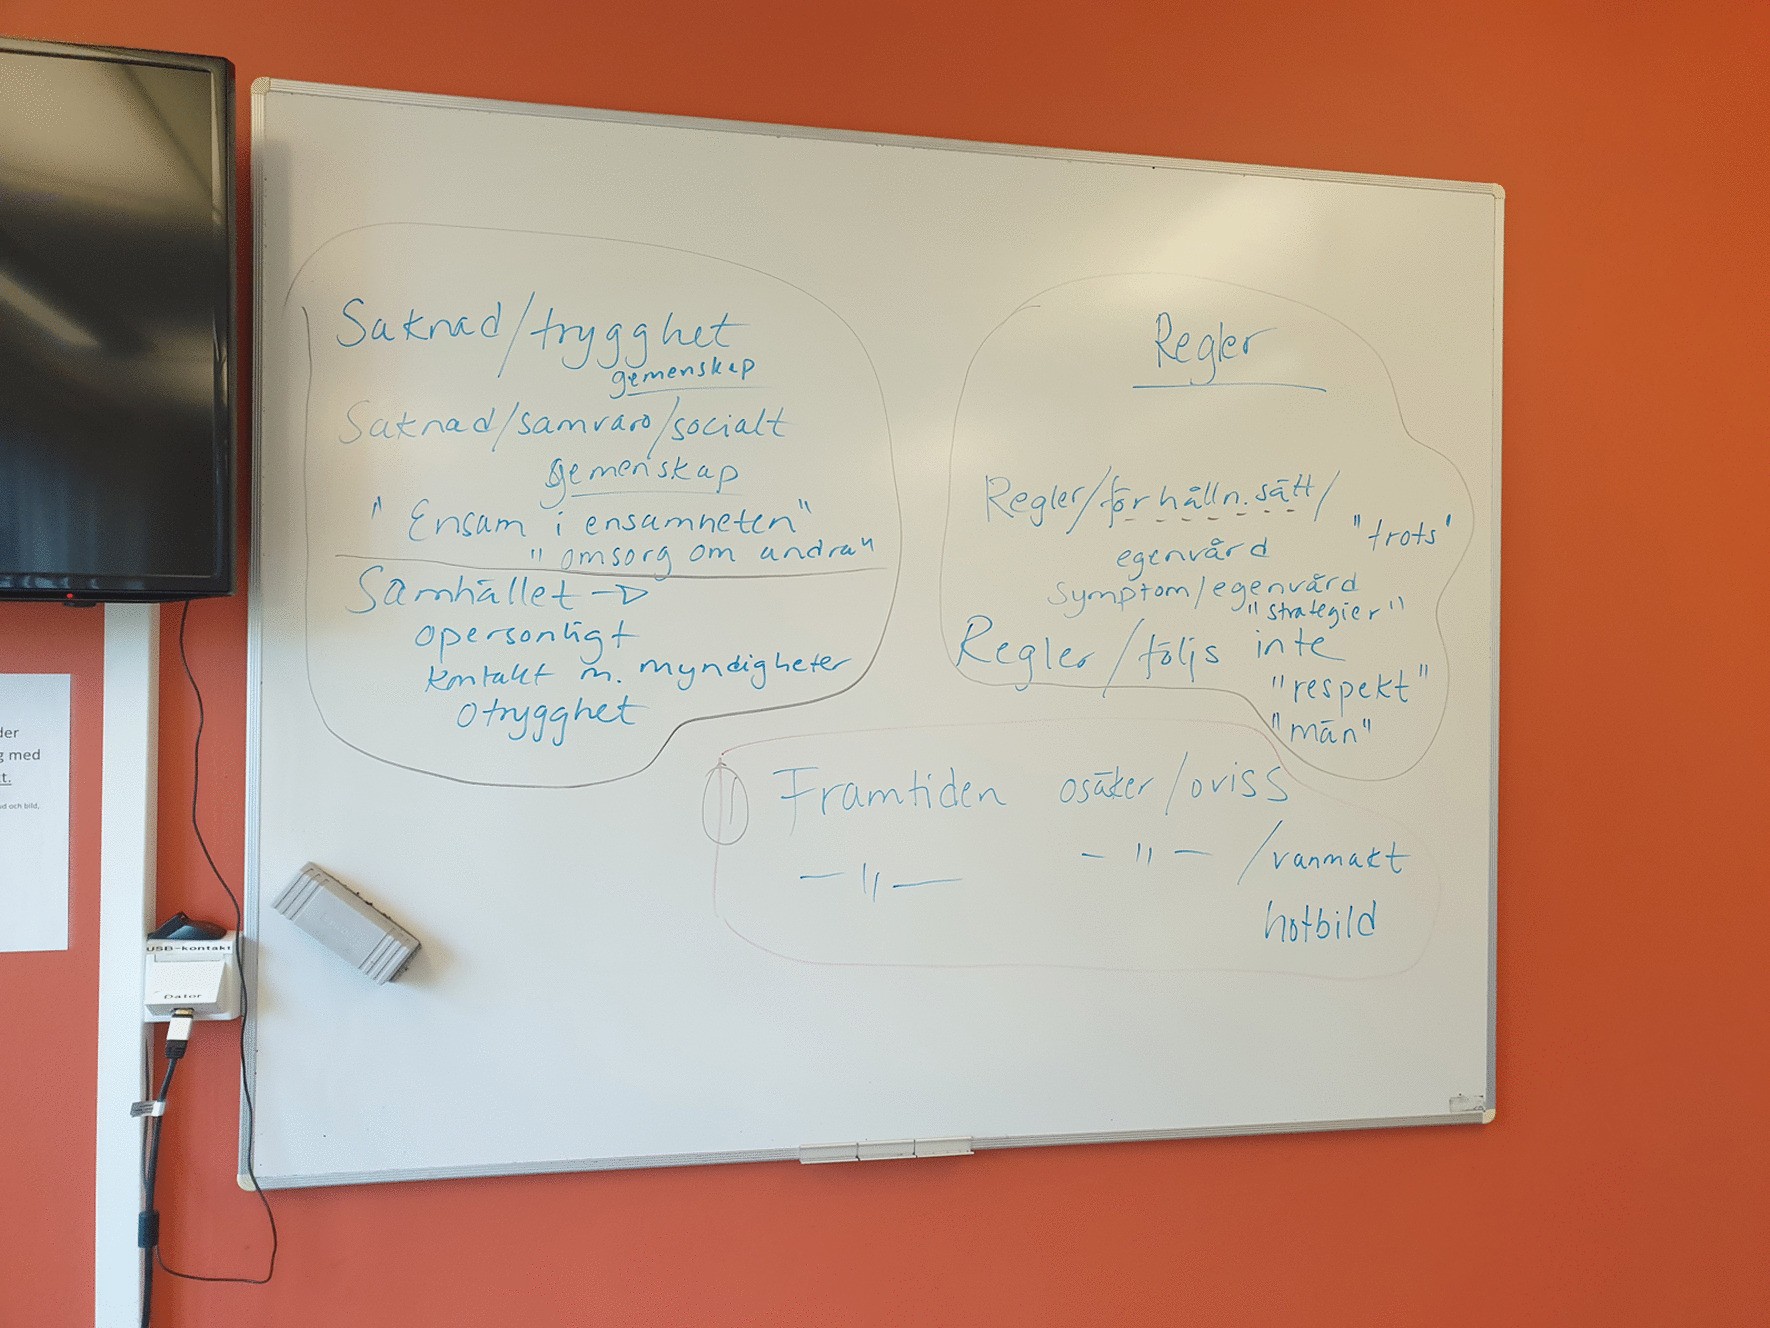 Saknad/trygghet
gemenskap
Saknad/samvaro/socialt
gemenskap
"Ensam i ensamheten"
"omsorg om andra"
Samhället →
opersonligt
kontakt m. myndigheter
otrygghet
Regler
Regler/förhålln.sätt/
"trots"
egenvård
symptom/egenvård
"strategier"
Regler/följs inte
"respekt"
"män"
Framtiden osäker/oviss
— " — — " — /vanmakt
hotbild
der
g med
t.
d och bild,
USB-kontakt
Dator